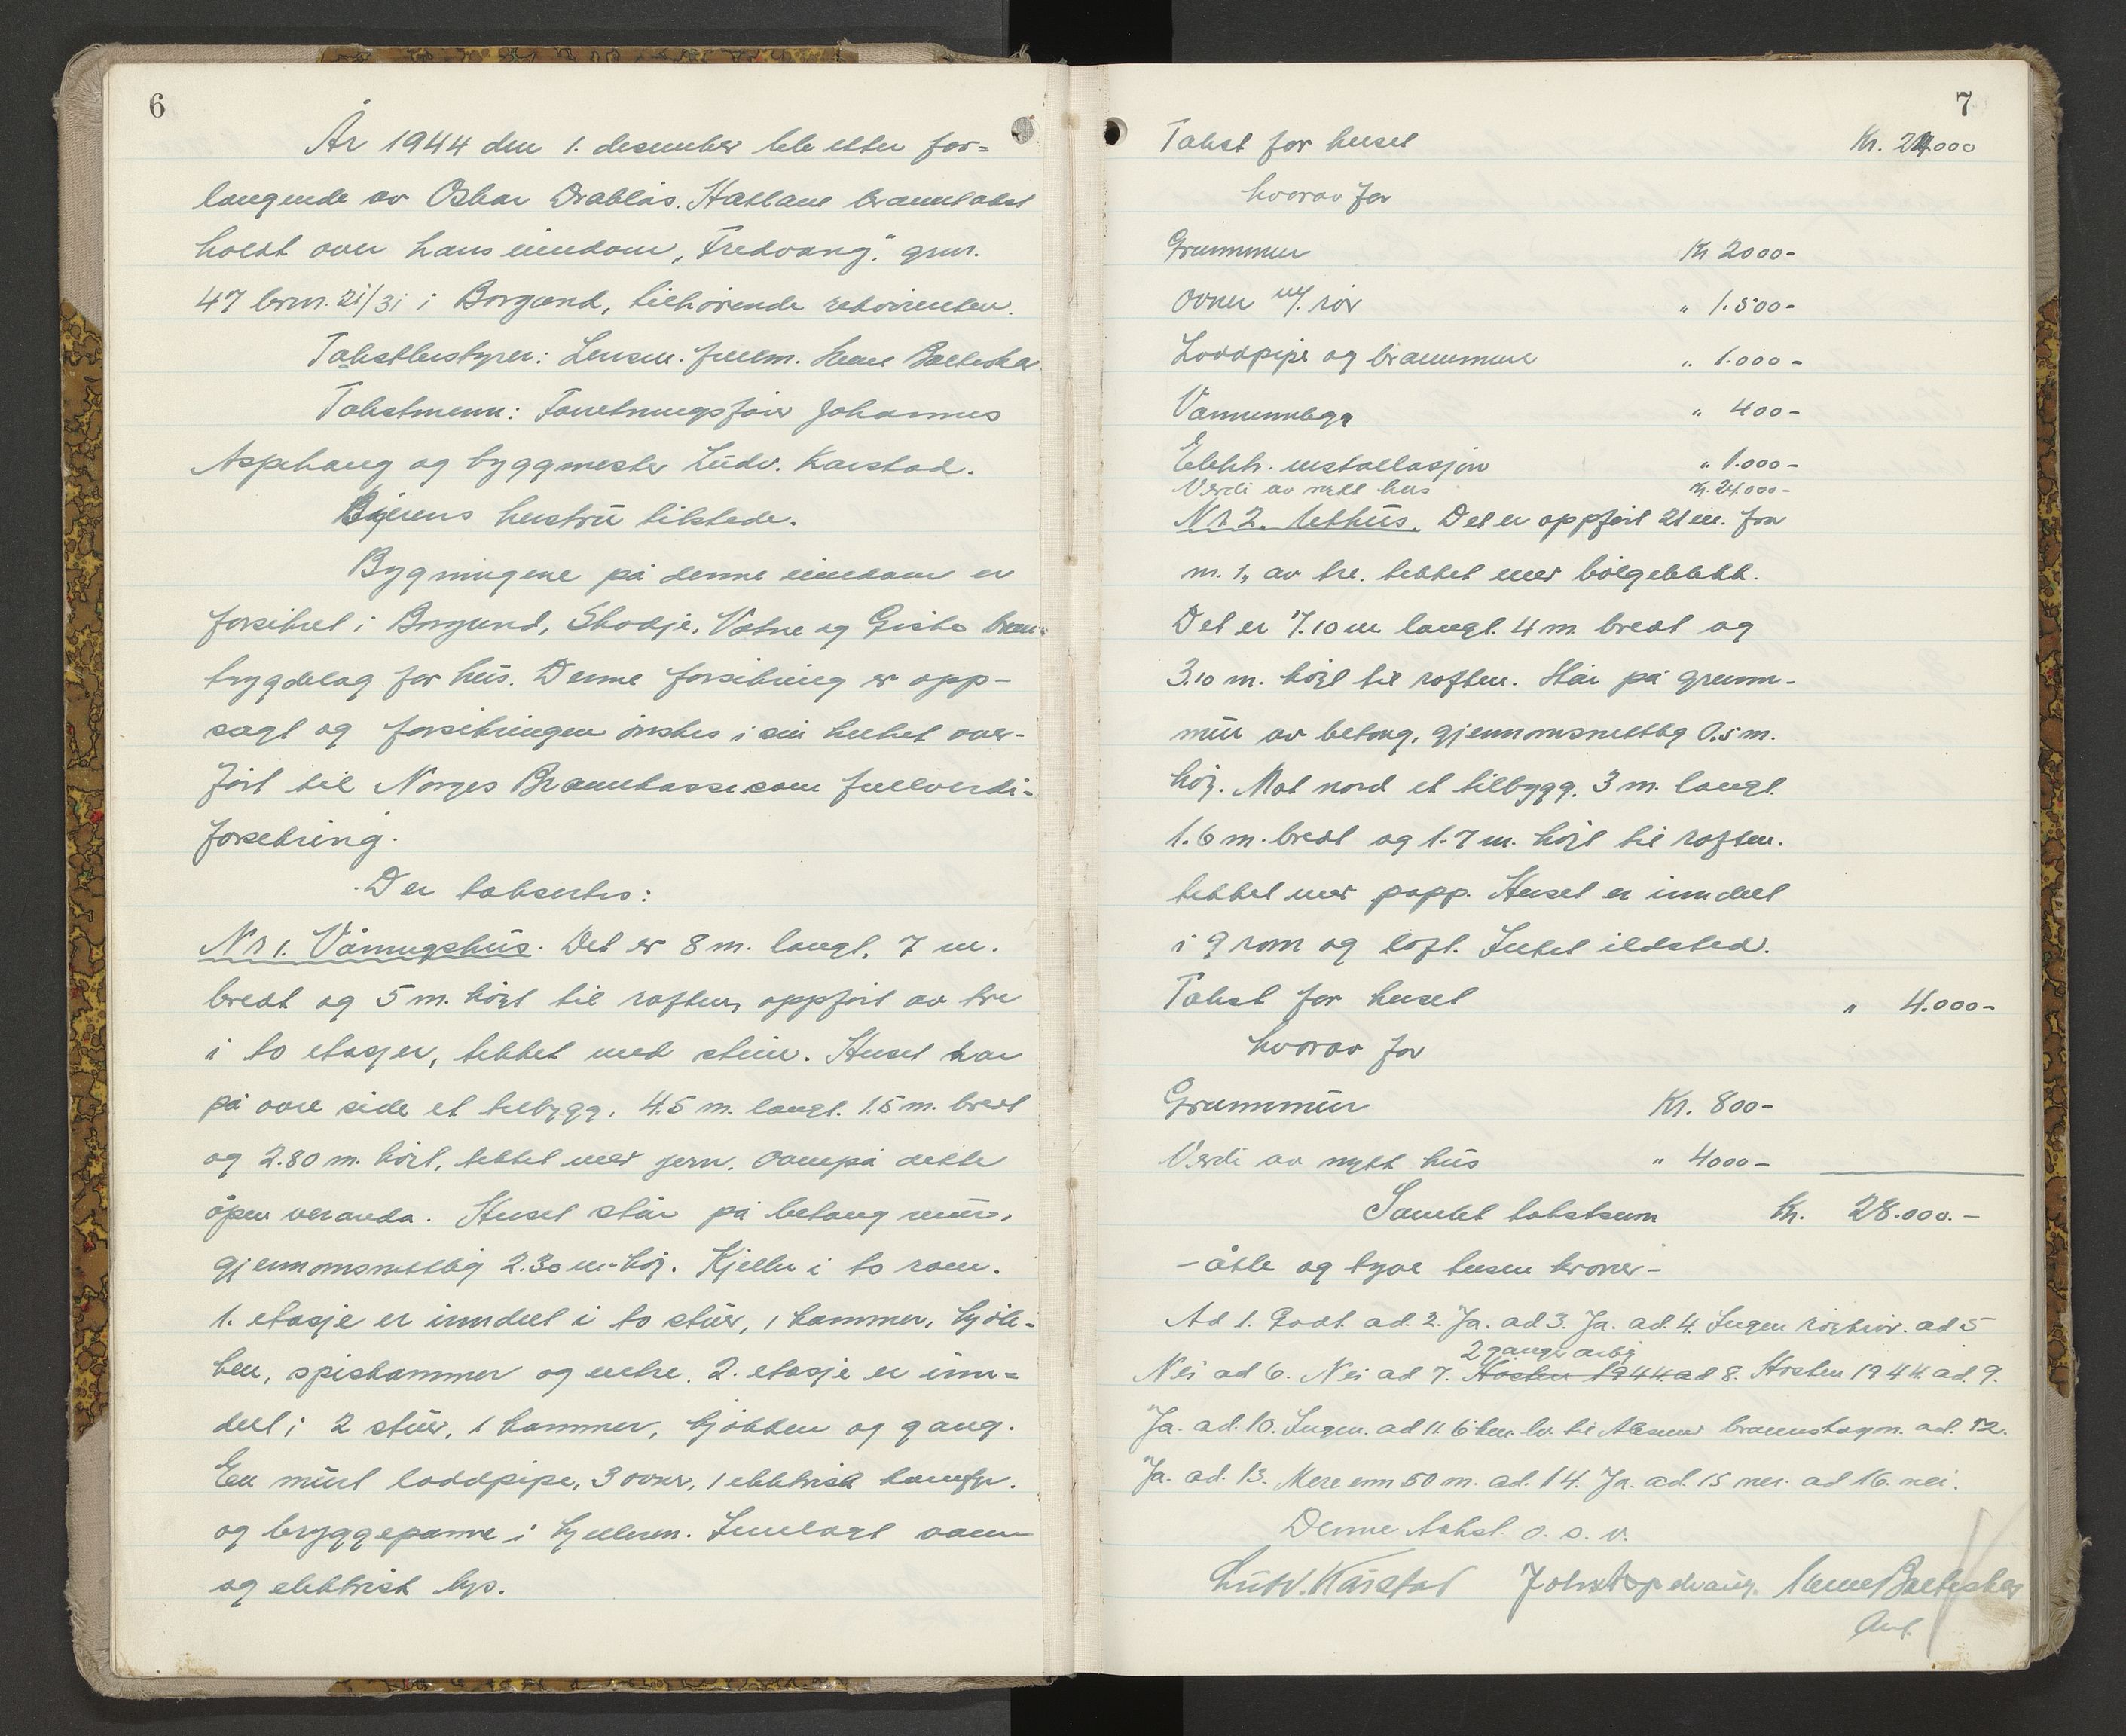 6
År 1944 den 1. desember ble etter for=
langende av Oskar Drabløs. Hatlane branntakst
holdt over hans eiendom „Fredvang". gnr.
47 brnr. 21/31 i Borgund, tilhørende rekvirenten.
Takstbestyrer: Lensm. fullm.
Takstmenn: Forretningsfører Johannes
Aspehaug og byggmester Ludv. Karstad.
Eierens hustru tilstede.
Bygningene på denne eiendom er
forsikret i Borgund, Skodje, Vatne og Giske brann-
trygdelag for hus. Denne forsikring er opp-
sagt og forsikringen ønskes i sin helhet over-
ført til Norges Brannkasse som fullverdi-
forsikring.
Der taksertes:
Nr 1. Våningshus. Det er 8 m. langt, 7 m.
bredt og 5 m. høgt til raften, oppført av tre
i to etasjer, tekket med stein. Huset har
på øvre side et tilbygg, 4.5 m. langt. 1.5 m. bredt
og 2.80 m. høgt, tekket med jern. Ovenpå dette
åpen veranda. Huset står på betong mur,
gjennomsnittlig 2.30 m. høg. Kjeller i to rom.
1. etasje er inndelt i to stuer, 1 kammer, kjøk-
ken, spiskammer og entre. 2. etasje er inn=
delt i 2 stuer, 1 kammer, kjøkken og gang.
En murt loddpipe, 3 ovner, 1 elektrisk komfyr.
og bryggepanne i kjelleren. Innlagt vann
og elektrisk lys.
7
Takst for huset Kr. 24.000
hvorav for
Grunnmur Kr 2000-
Ovner m/. rør " 1.500-
Loddpipe og brannmur " 1.000-
Vanninnlegg " 400-
Elektr. installasjon " 1.000-
Verdi av nytt hus Kr. 24.000-
Nr 2. Uthus. Det er oppført 21 m. fra
nr. 1, av tre, tekket med bølgeblekk.
Det er 7.10 m langt. 4 m. bredt og
3.10 m. høgt til raften. Står på grunn-
mur av betong, gjennomsnittlig 0.5 m.
høg. Mot nord et tilbygg. 3 m. langt.
1.6 m. bredt og 1.7 m. høgt til raften.
tekket med papp. Huset er inndelt
i 9 rom og loft. Intet ildsted.
Takst for huset " 4.000-
hvorav for
Grunnmur Kr. 800-
Verdi av nytt hus " 4000-
Samlet takstsum Kr. 28.000.-
- åtte og tyve tusen kroner-
Ad 1. Godt. ad. 2. Ja. ad 3. Ja. ad. 4. Ingen ad 5
2 ganger årlig
Nei ad 6. Nei ad 7. Høsten 1944. ad 8. Høsten 1944. ad. 9.
Ja. ad. 10. Ingen. ad 11. 6 km. til Ålesund brannstasjon. ad. 12.
Ja. ad. 13. Mere enn 50 m. ad. 14. Ja. ad. 15 nei. ad 16. nei.
Denne takst. o. s. v.
Ludv. Karstad Johs Aspehaug.